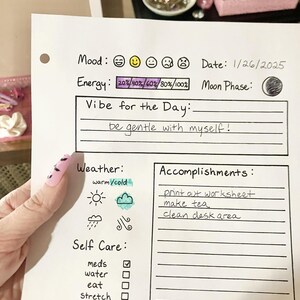 Mood: Date: 1/26/2025
Energy: 20%/40%/60%/80%/100% Moon Phase:
Vibe for the Day:
be gentle with myself!
Weather: Accomplishments:
warm/cold
print out worksheet
make tea
clean desk area
Self Care:
meds
water
eat
stretch